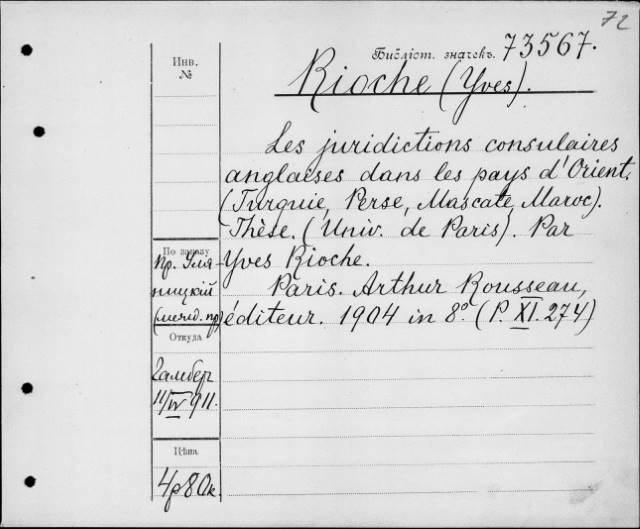 72
Библіот. значекъ. 73567.
Инв.
№
Rioche (Yves).
Les juridictions consulaires
anglaises dans les pays d'Orient.
(Turquie, Perse, Mascate, Maroc).
Thèse. (Univ. de Paris). Par
Yves Rioche.
Paris. Arthur Rousseau,
éditeur. 1904 in 8º. (P. XI. 274)
По заказу
Пр. Уля-
ницкій
Откуда
Гамбер
11/IV 911.
Цѣна
4р 80к.